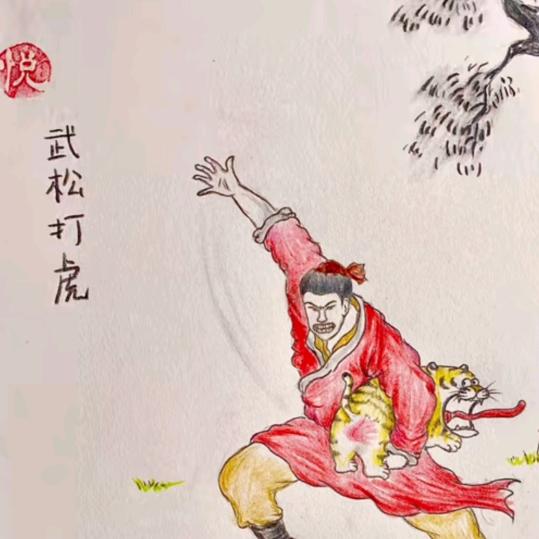 悦
武松打虎